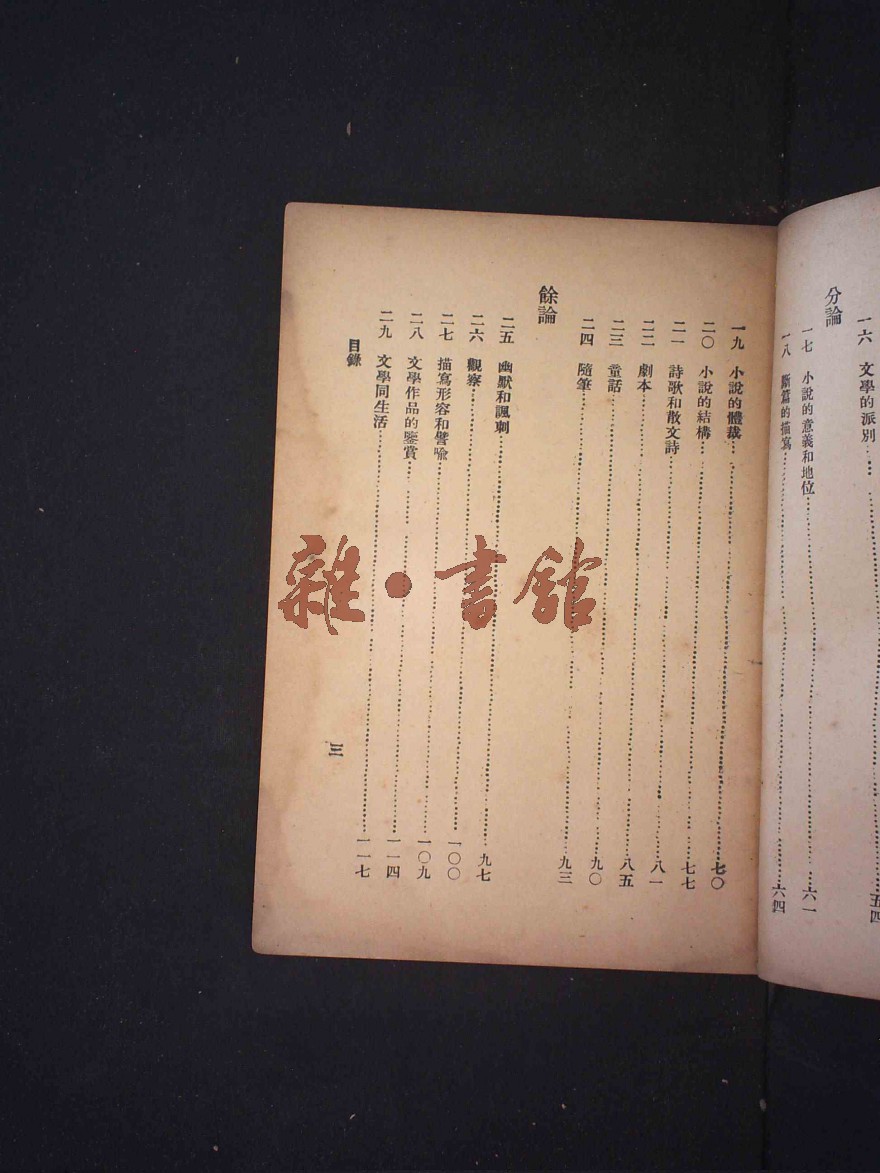 一六　文學的派別……五四
分論
一七　小說的意義和地位……六一
一八　斷篇的描寫……六四
一九　小說的體裁……七〇
二〇　小說的結構……七〇
二一　詩歌和散文詩……七七
二二　劇本……八一
二三　童話……八五
二四　隨筆……九〇
餘論
二五　幽默和諷刺……九三
二六　觀察……九七
二七　描寫形容和譬喩……一〇〇
二八　文學作品的鑒賞……一〇九
二九　文學同生活……一一四
一一七
目錄
三
雜·書館